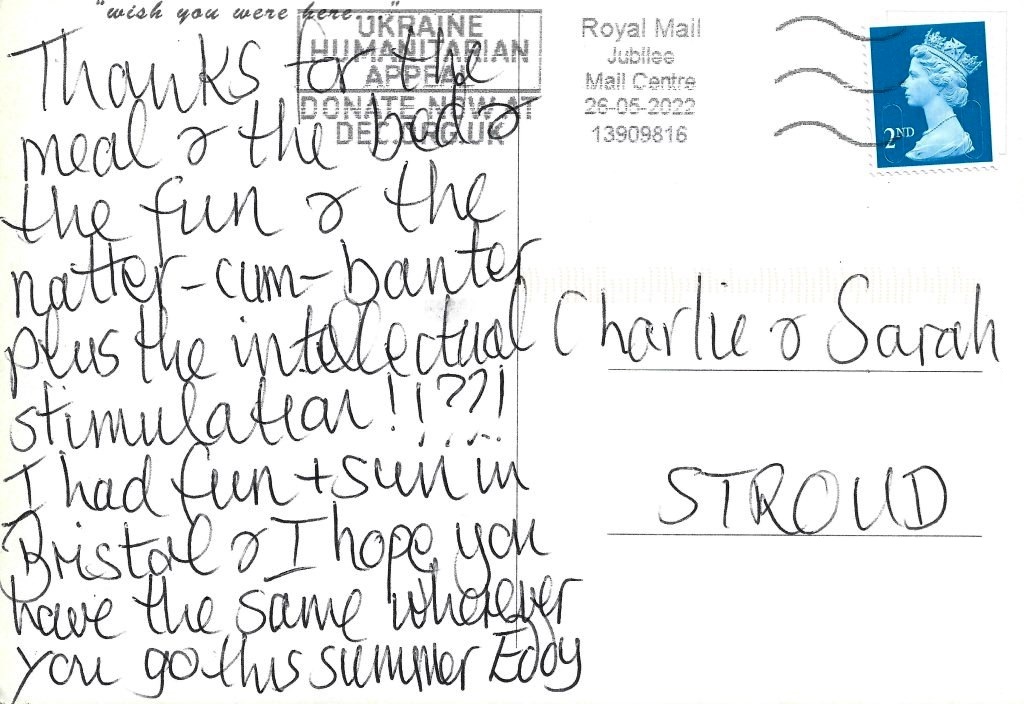 "wish you were here..."
Thanks for the
meal & the bed &
the fun & the
natter-cum-banter
plus the intellectual
stimulation!!??!
I had fun + sun in
Bristol & I hope you
have the same wherever
you go this summer Eddy
UKRAINE
HUMANITARIAN
APPEAL
DONATE NOW AT
DEC.ORG.UK
Royal Mail
Jubilee
Mail Centre
26-05-2022
13909816
2ND
Charlie & Sarah
STROUD